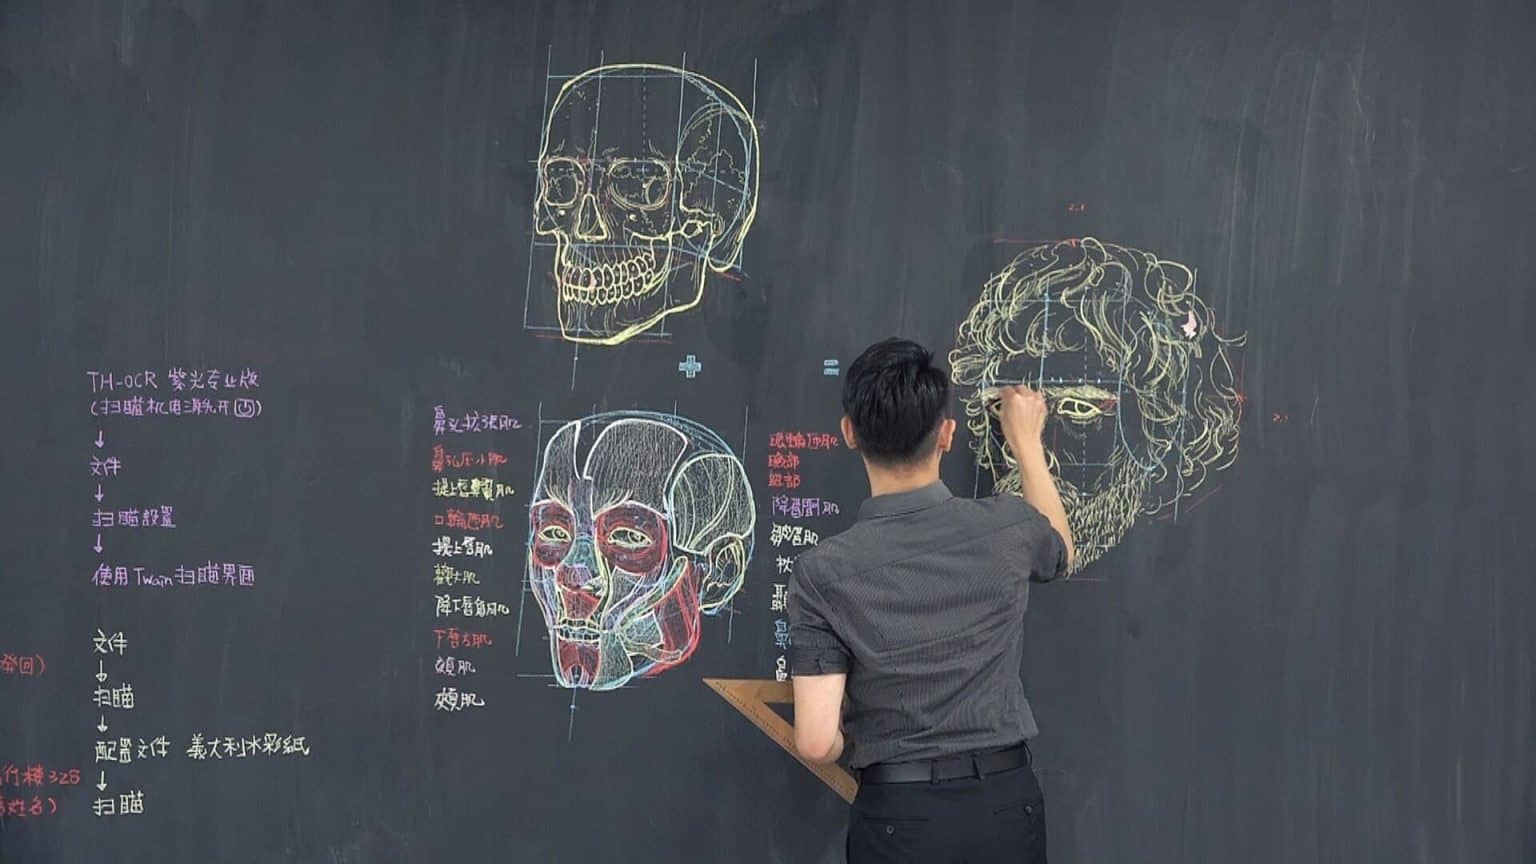 TH-OCR 紫光专业版
(扫瞄机电源先开)
↓
文件
↓
扫瞄設置
↓
使用Twain扫瞄界面
文件
↓
扫瞄
↓
配置文件 義大利水彩紙
↓
扫瞄
行樓325
姓名)
鼻孔扩張肌
鼻孔压小肌
提上唇鼻翼肌
口輪匝肌
提上唇肌
顴大肌
降下唇角肌
下唇方肌
頰肌
頦肌
+
=
眼輪匝肌
瞼部
眶部
降眉間肌
皺眉肌
枕
2.1
2.1